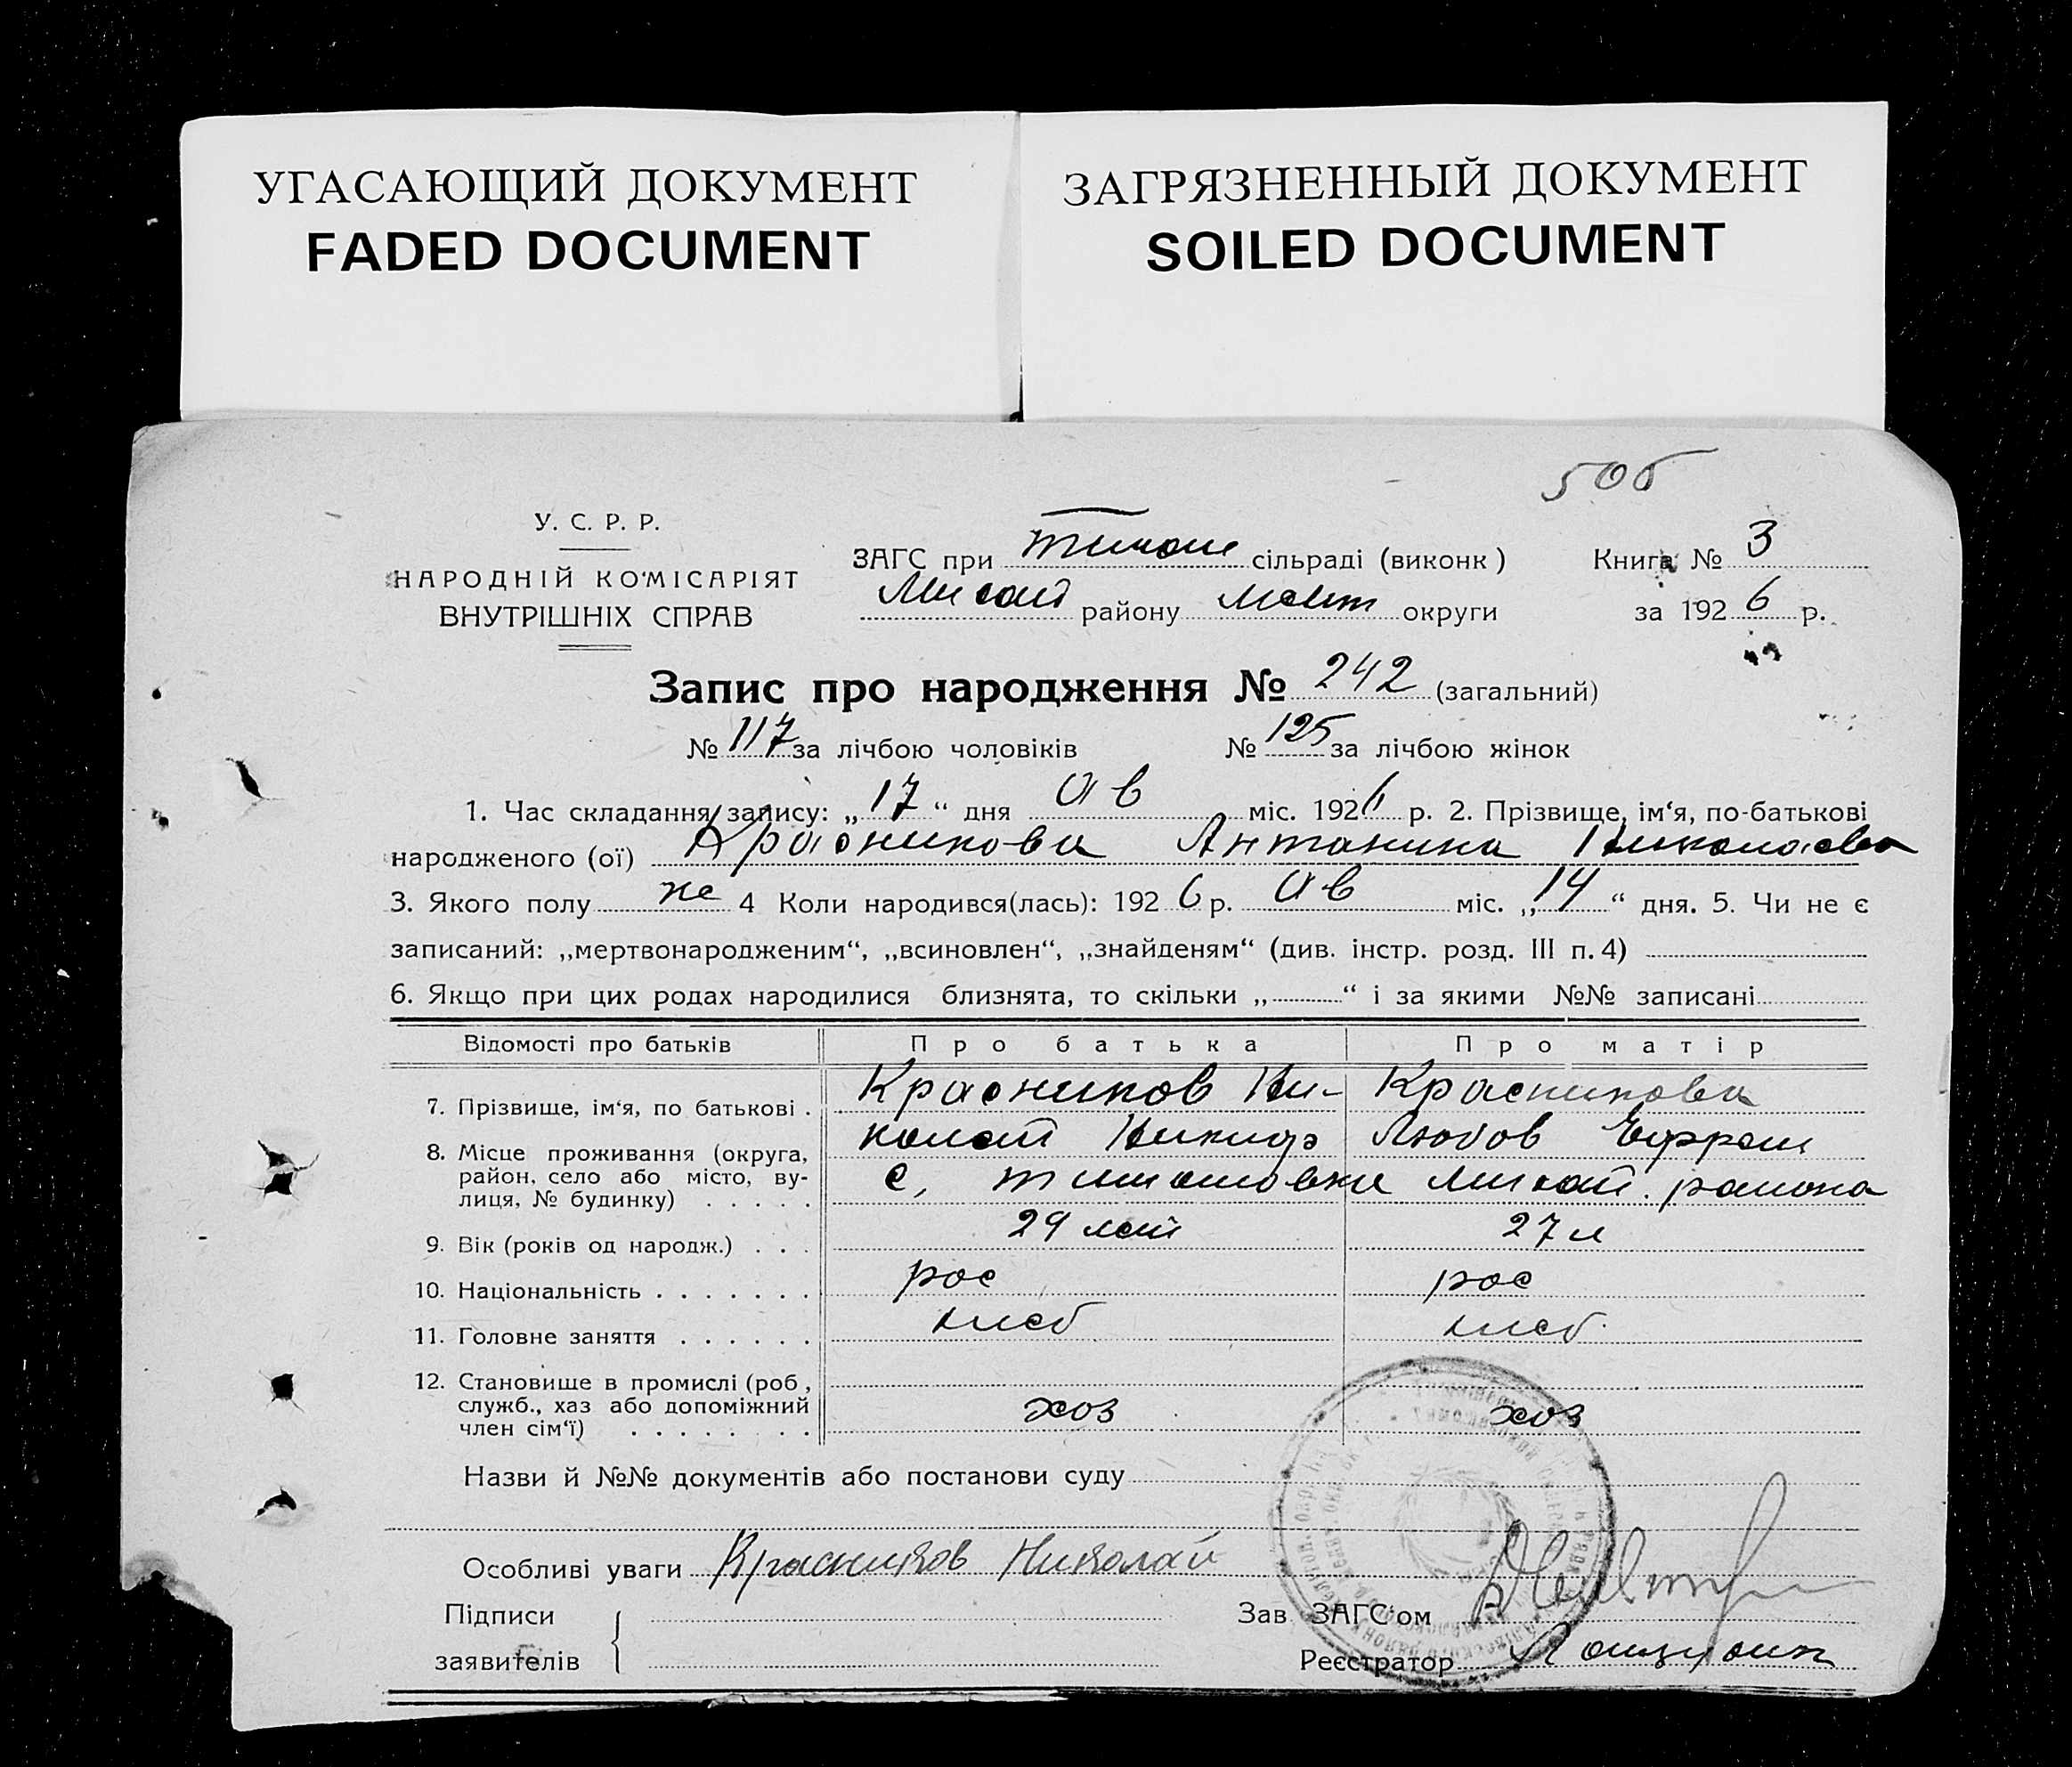 УГАСАЮЩИЙ ДОКУМЕНТ
FADED DOCUMENT
ЗАГРЯЗНЕННЫЙ ДОКУМЕНТ
SOILED DOCUMENT
50б
У. С. Р. Р.
НАРОДНІЙ КОМІСАРІЯТ
ВНУТРІШНІХ СПРАВ
ЗАГС при Тимош сільраді (виконк)
Михай району Меліт округи
Книга № 3
за 1926 р.
Запис про народження № 242 (загальний)
№ 117 за лічбою чоловіків № 125 за лічбою жінок
1. Час складання запису: „17“ дня Ав міс. 1926 р. 2. Прізвище, ім‘я, по-батькові
народженого (ої) Красникова Антанина Николаевн
3. Якого полу же 4 Коли народився(лась): 1926 р. Ав міс. „14“ дня. 5. Чи не є
записаний: „мертвонародженим“, „всиновлен“, „знайденям“ (див. інстр. розд. III п. 4)
6. Якщо при цих родах народилися близнята, то скільки „ “ і за якими №№ записані
Відомості про батьків Про батька Про матір
7. Прізвище, ім‘я, по батькові . Красников Ни- Красникова
колай Никифо Любов Ефрем
8. Місце проживання (округа,
район, село або місто, ву-
лиця, № будинку) . . . . . с. Тимошовки Михай. района
9. Вік (років од народж.) . . . 29 лет 27 л
10. Національність . . . . . . . рос рос
11. Головне заняття . . . . . . хлеб хлеб.
12. Становище в промислі (роб ,
служб., хаз або допоміжний
член сім‘ї) . . . . . . . . хоз хоз
Назви й №№ документів або постанови суду
Особливі уваги Красников Николай
Підписи
заявителів
Зав. ЗАГС‘ом
Реєстратор